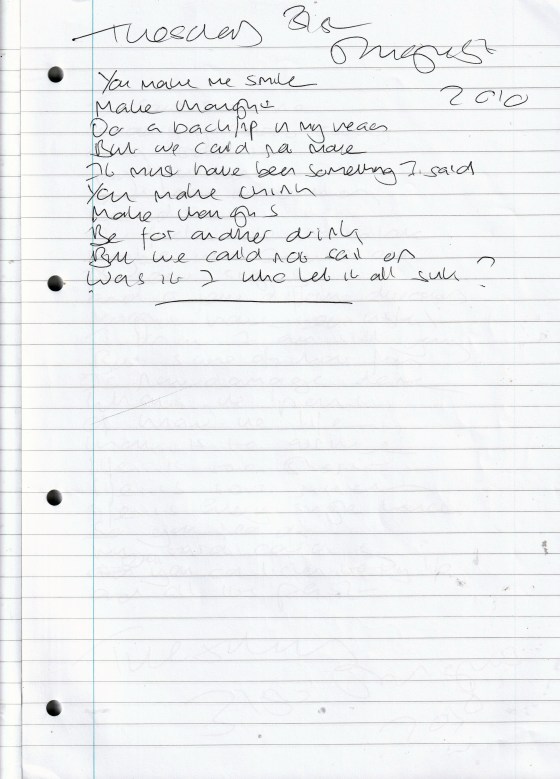 Tuesday 31st
August
2010
You make me smile
Make thoughts
Do a backflip in my head
But we could not make
It must have been something I said
You make think
Make thoughts
Be for another drink
But we could not sail on
Was it I who let it all sink ?